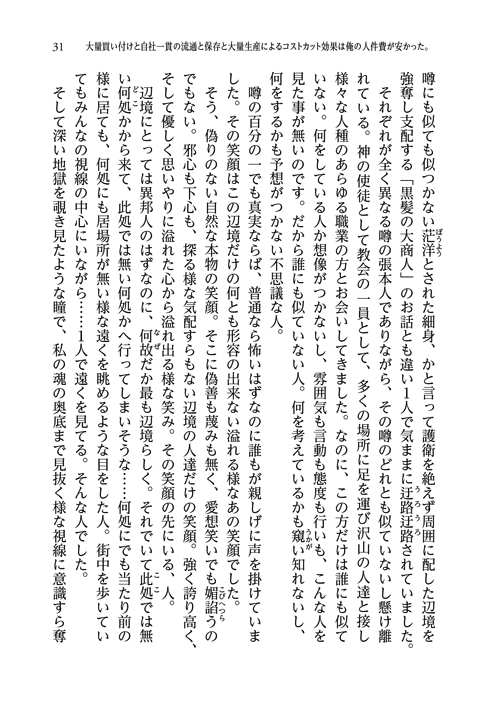 31　大量買い付けと自社一貫の流通と保存と大量生産によるコストカット効果は俺の人件費が安かった。
噂にも似ても似つかない茫洋とされた細身、かと言って護衛を絶えず周囲に配した辺境を
強奪し支配する「黒髪の大商人」のお話とも違い１人で気ままに迂路迂路されていました。
それぞれが全く異なる噂の張本人でありながら、その噂のどれとも似ていないし懸け離
れている。神の使徒として教会の一員として、多くの場所に足を運び沢山の人達と接し
様々な人種のあらゆる職業の方とお会いしてきました。なのに、この方だけは誰にも似て
いない。何をしている人か想像がつかないし、雰囲気も言動も態度も行いも、こんな人を
見た事が無いのです。だから誰にも似ていない人。何を考えているかも窺い知れないし、
何をするかも予想がつかない不思議な人。
噂の百分の一でも真実ならば、普通なら怖いはずなのに誰もが親しげに声を掛けていま
した。その笑顔はこの辺境だけの何とも形容の出来ない溢れる様なあの笑顔でした。
そう、偽りのない自然な本物の笑顔。そこに偽善も蔑みも無く、愛想笑いでも媚諂うの
でもない。邪心も下心も、探る様な気配すらもない辺境の人達だけの笑顔。強く誇り高く、
そして優しく思いやりに溢れた心から溢れ出る様な笑み。その笑顔の先にいる、人。
辺境にとっては異邦人のはずなのに、何故だか最も辺境らしく。それでいて此処では無
い何処かから来て、此処では無い何処かへ行ってしまいそうな……何処にでも当たり前の
様に居ても、何処にも居場所が無い様な遠くを眺めるような目をした人。街中を歩いてい
てもみんなの視線の中心にいながら……１人で遠くを見てる。そんな人でした。
そして深い地獄を覗き見たような瞳で、私の魂の奥底まで見抜く様な視線に意識すら奪